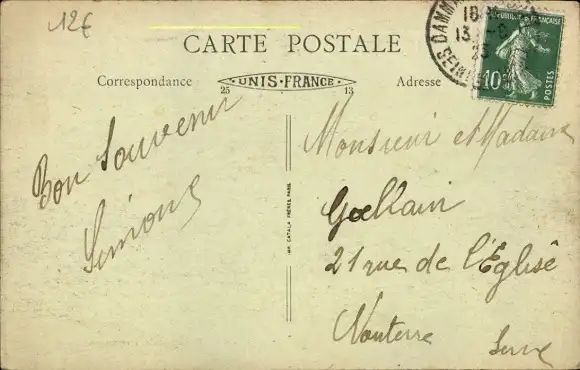 12€
CARTE POSTALE
Correspondance
UNIS-FRANCE
25
13
Adresse
RÉPUBLIQUE FRANÇAISE
10
POSTES
Bon Souvenir
Simone
IMP. CATALA FRÈRES, PARIS
Monsieur et Madame
21 rue de l'Eglise
Nanterre
Seine